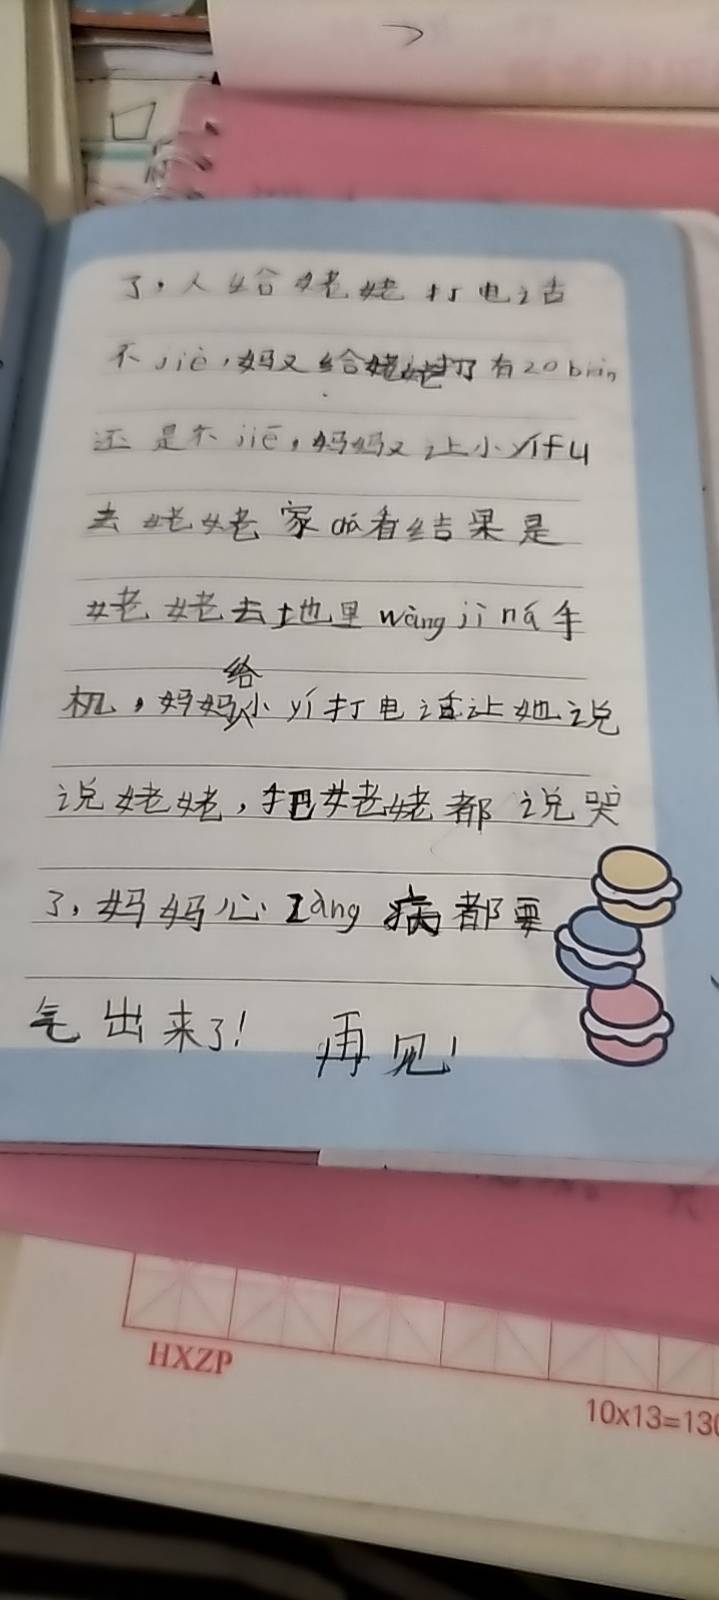 了，人给姥姥打电话
不jiē，妈又给姥姥打了有20biàn
还是不jiē，妈妈又让小yífu
去姥姥家看结果是
姥姥去地里wàngjìná手
机，妈妈给小yí打电话让她说
说姥姥，把姥姥都说哭
了，妈妈心zàng病都要
气出来了！ 再见！
HXZP
10x13=130